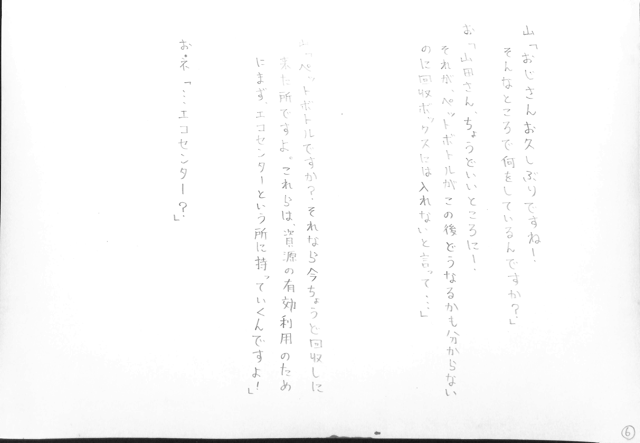 山「おじさんお久しぶりですね!
そんなところで何をしているんですか?」
お「山田さん、ちょうどいいところに!
それが、ペットボトルがこの後どうなるかも分からない
のに回収ボックスには入れないと言って…」
「ペットボトルですか?それなら今ちょうど回収しに
来た所ですよ。これらは、資源の有効利用のため
にまず、エコセンターという所に持っていくんですよ!」
お・ネ「…エコセンター?」
6